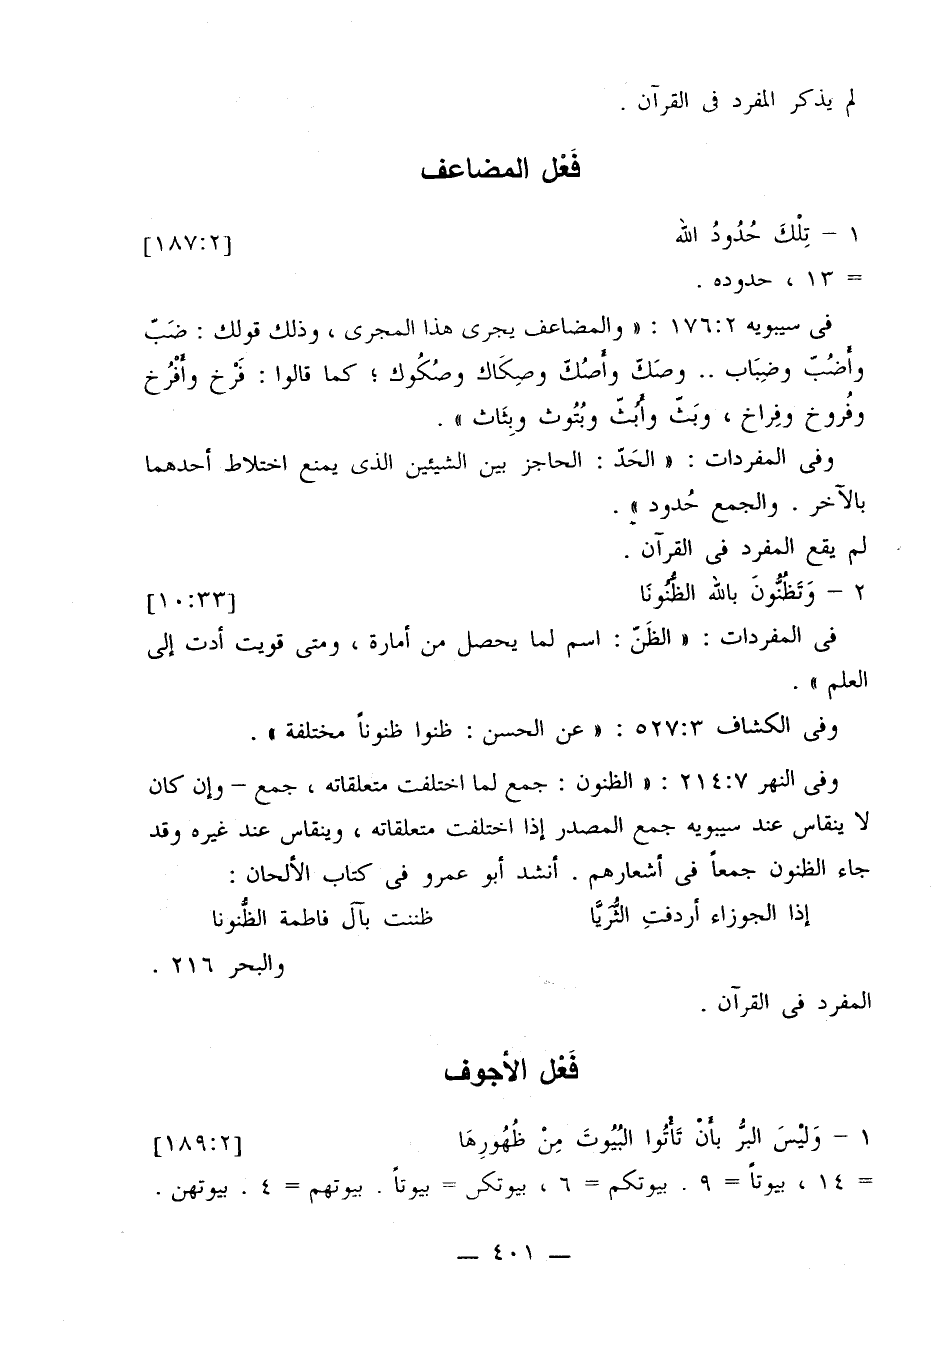 لم يذكر المفرد فى القرآن .
فَعْل المضاعف
١ – تِلْكَ حُدُودُ الله [٢:١٨٧]
= ١٣ ، حدوده .
فى سيبويه ٢:١٧٦ : « والمضاعف يجرى هذا المجرى ، وذلك قولك : ضَبّ
وأَضُبّ وضِبَاب .. وصَكّ وأَصُكّ وصِكَاك وصُكُوك ؛ كما قالوا : فَرْخ وأَفْرُخ
وفُروخ وفِراخ ، وبَتّ وأَبُتّ وبُتُوت وبِتَات » .
وفى المفردات : « الحَدّ : الحاجز بين الشيئين الذى يمنع اختلاط أحدهما
بالآخر . والجمع حُدود » .
لم يقع المفرد فى القرآن .
٢ – وَتَظُنُّونَ بالله الظُّنُونَا [٣٣:١٠]
فى المفردات : « الظَنّ : اسم لما يحصل من أمارة ، ومتى قويت أدت إلى
العلم » .
وفى الكشاف ٣:٥٢٧ : « عن الحسن : ظنوا ظنوناً مختلفة » .
وفى النهر ٧:٢١٤ : « الظنون : جمع لما اختلفت متعلقاته ، جمع – وإن كان
لا ينقاس عند سيبويه جمع المصدر إذا اختلفت متعلقاته ، وينقاس عند غيره وقد
جاء الظنون جمعاً فى أشعارهم . أنشد أبو عمرو فى كتاب الألحان :
إذا الجوزاء أردفتِ الثُّرَيَّا ظننت بآل فاطمة الظُّنونا
والبحر ٢١٦ .
المفرد فى القرآن .
فَعْل الأجوف
١ – وَلَيْسَ البرُّ بأَنْ تَأْتُوا البُيُوتَ مِنْ ظُهُورِهَا [٢:١٨٩]
= ١٤ ، بيوتاً = ٩ . بيوتكم = ٦ ، بيوتكن = بيوتاً . بيوتهم = ٤ . بيوتهن .
— ٤٠١ —